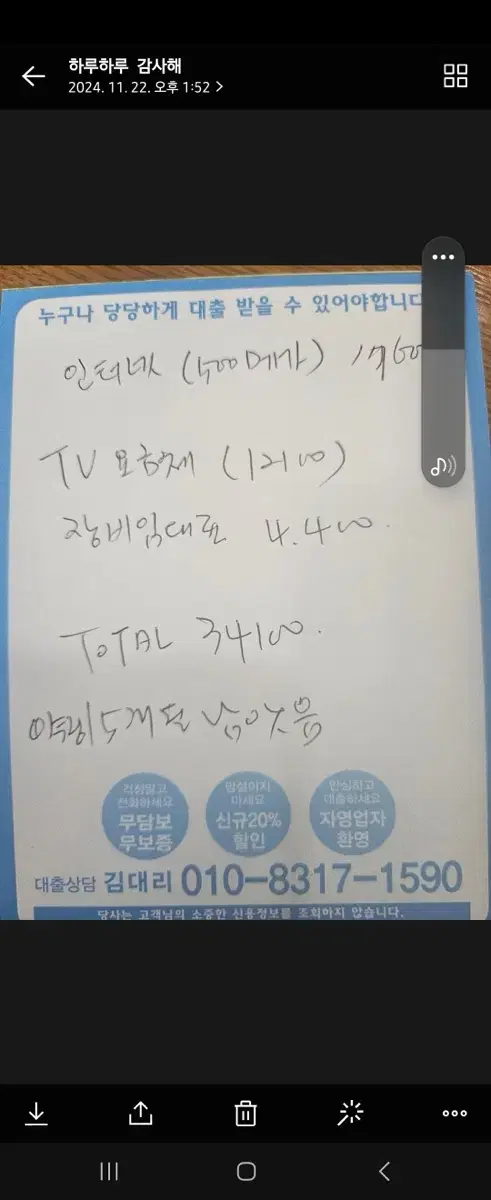 하루하루 감사해
2024. 11. 22. 오후 1:52 >
누구나 당당하게 대출 받을 수 있어야합니다
인터넷 (500메가) 1760
TV 요금제 (12100)
장비임대료 4.400.
TOTAL 34100.
약정 5개월 남아있음
걱정말고
전화하세요
무담보
무보증
망설이지
마세요
신규20%
할인
안심하고
대출하세요
자영업자
환영
대출상담 김대리 010-8317-1590
당사는 고객님의 소중한 신용정보를 조회하지 않습니다.